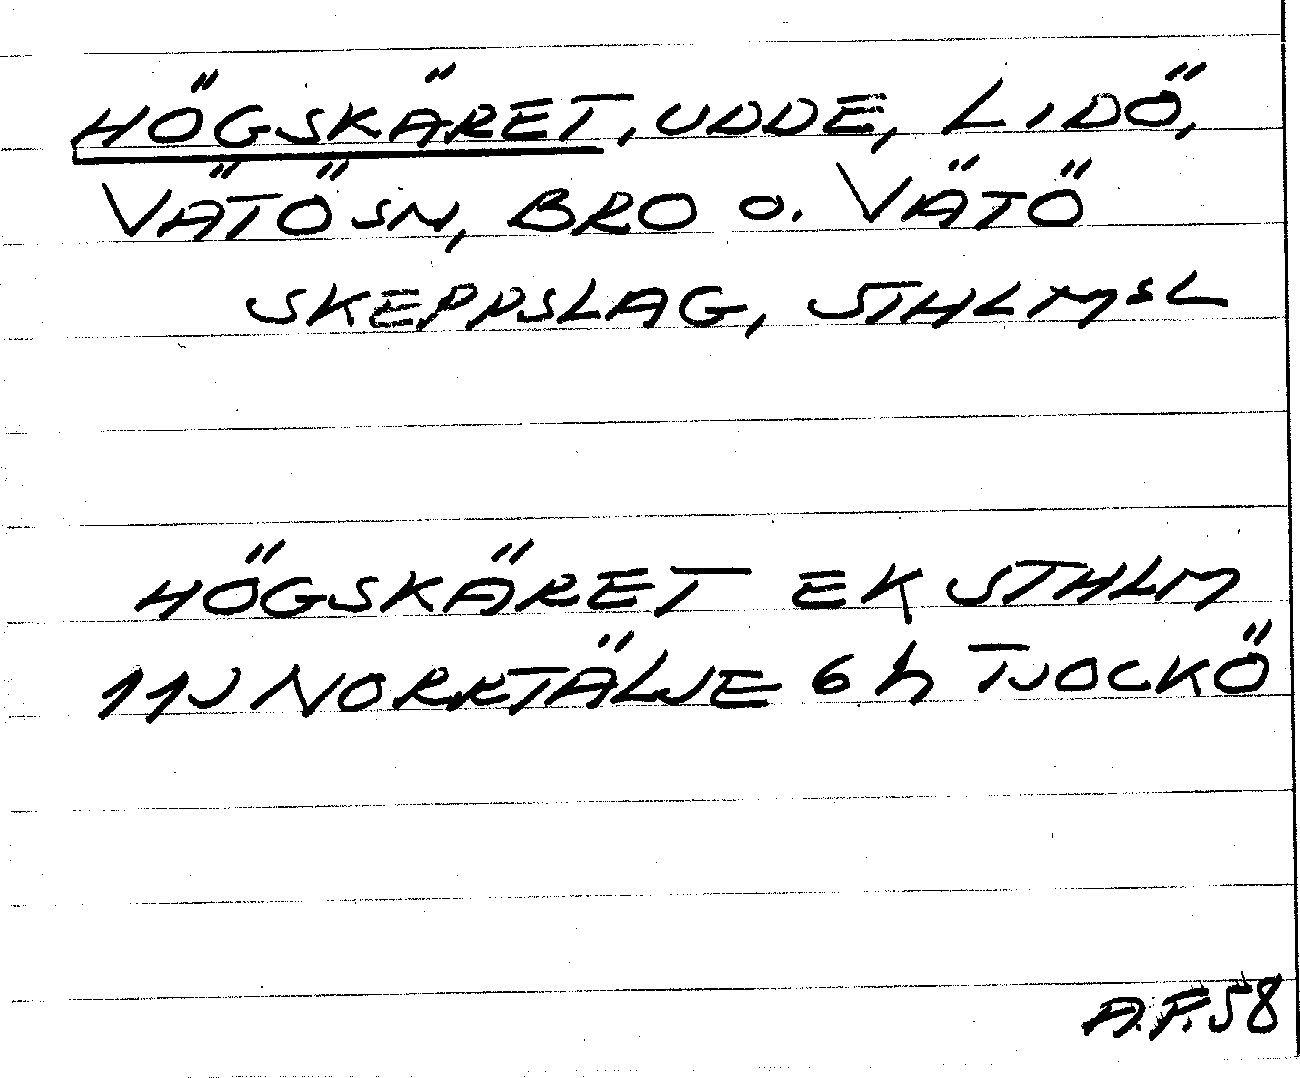 HÖGSKÄRET, UDDE, LIDÖ,
VÄTÖ SN, BRO O. VÄTÖ
SKEPPSLAG, STHLMS L
HÖGSKÄRET EK STHLM
11J NORRTÄLJE 6h TJOCKÖ
A.F. 58